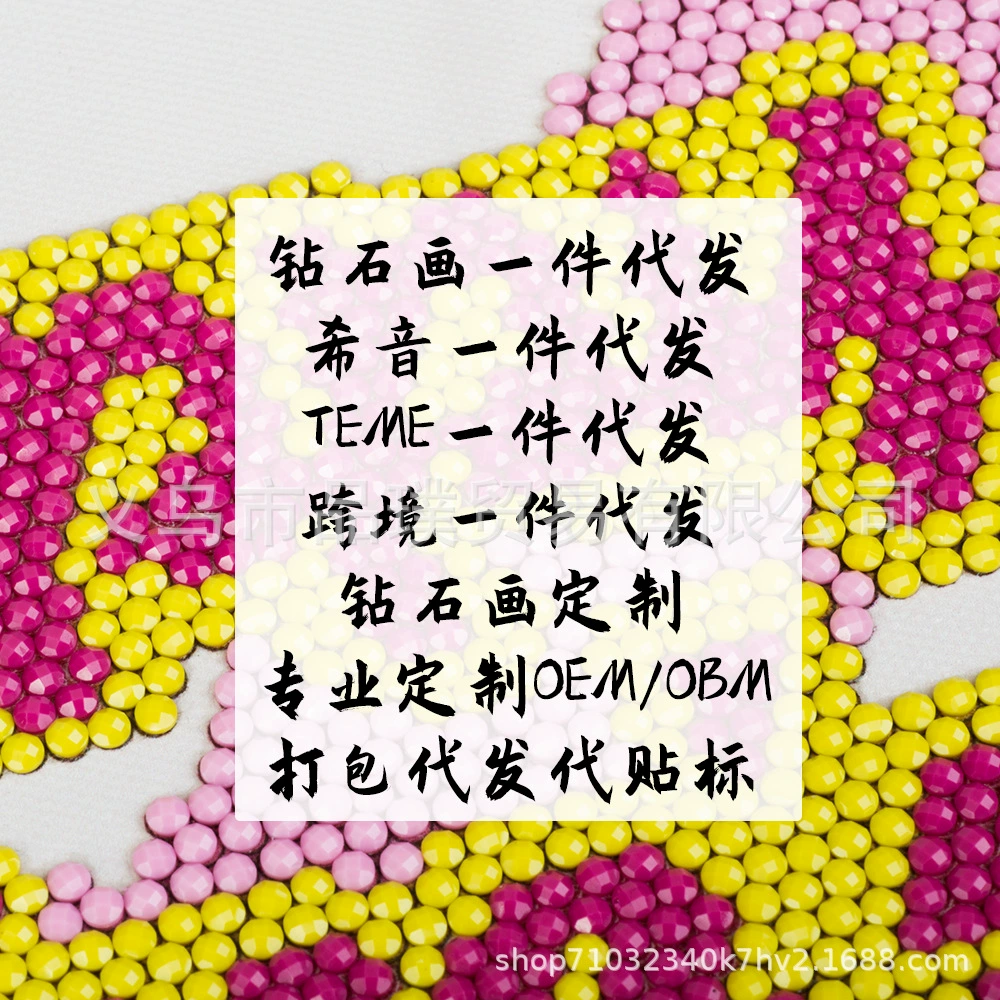 钻石画一件代发
希音一件代发
TEME一件代发
跨境一件代发
钻石画定制
专业定制OEM/OBM
打包代发代贴标
shop71032340k7hv2.1688.com